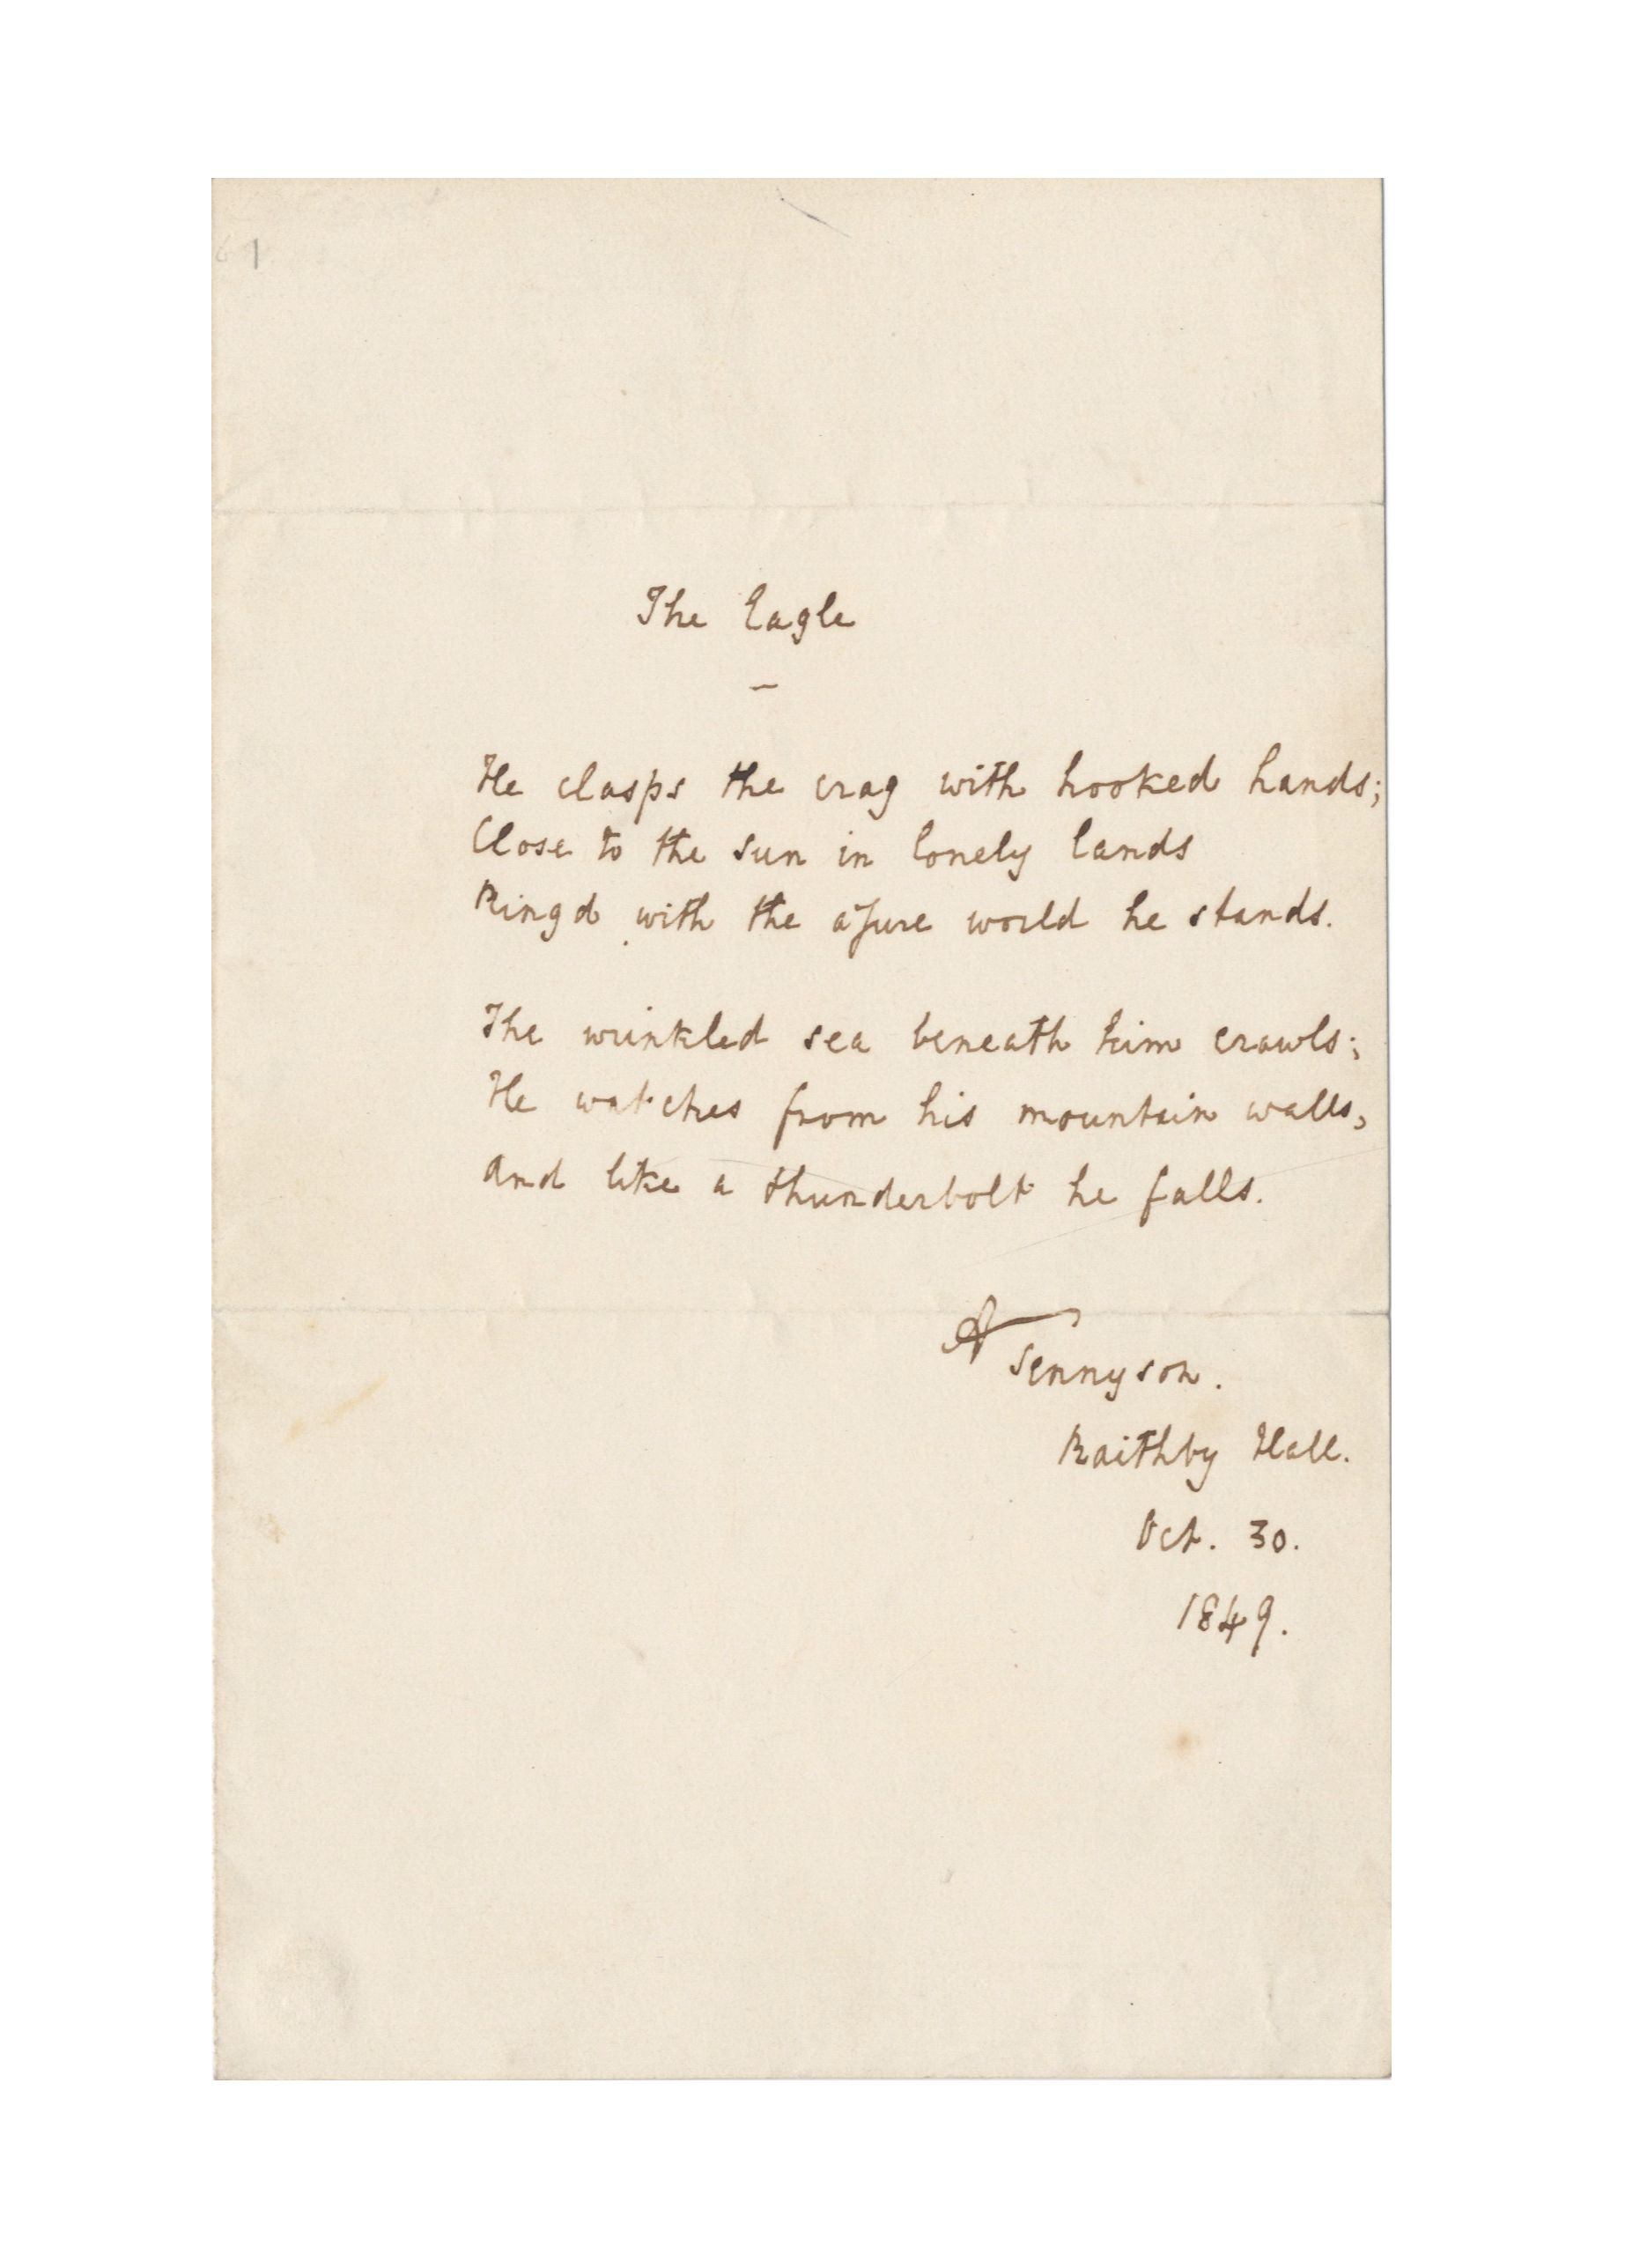 61
The Eagle
—
He clasps the crag with hooked hands;
Close to the sun in lonely lands
Ringd with the azure world he stands.
The wrinkled sea beneath him crawls;
He watches from his mountain walls,
And like a thunderbolt he falls.
A Tennyson.
Raithby Hall.
Oct. 30.
1849.